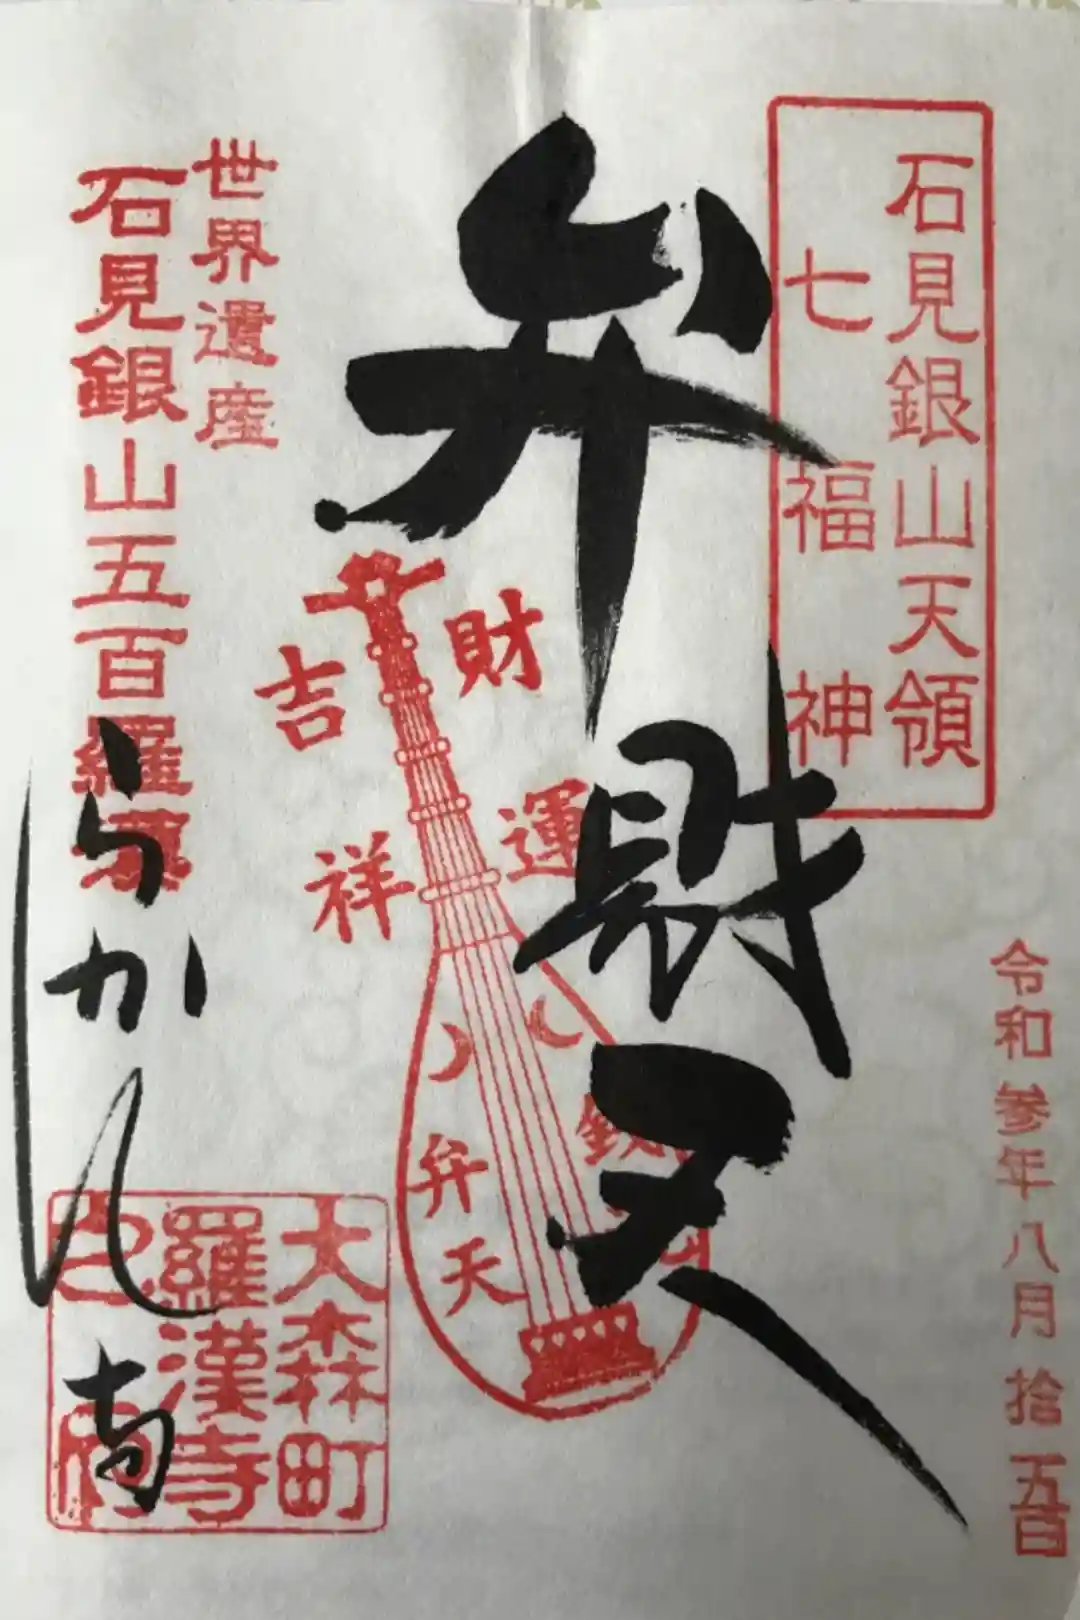 石見銀山天領
七福神
令和参年八月拾五日
弁財天
財運
吉祥
弁天
世界遺産
石見銀山五百羅漢
らかん寺
大森町
羅漢寺